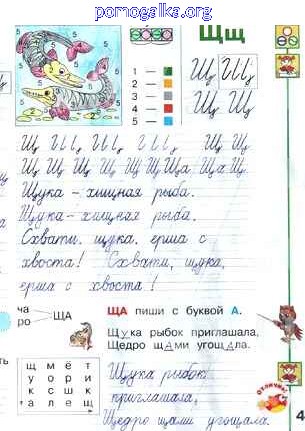 pomogalka.org
Щщ
5 5 5
5 5
2
1 —
2 —
3 —
4 —
5 —
Щ Щ
Щ Щ
Щ Щ Щ
Щ Щ Щ Щ Щ Ща Ща Щ
Щука – хищная рыба.
Щука – хищная рыба.
Схвати, щука, ерша с
хвоста! Схвати, щука,
ерша с хвоста!
ча
ро
ЩА
ЩА пиши с буквой А.
Щука рыбок приглашала,
Щедро щАми угощАла.
щ м ё т
у о р и
к с ш к
а л е щ
Щука рыбок
приглашала,
Щедро щами угощала.
ОТЛИЧНО!
4